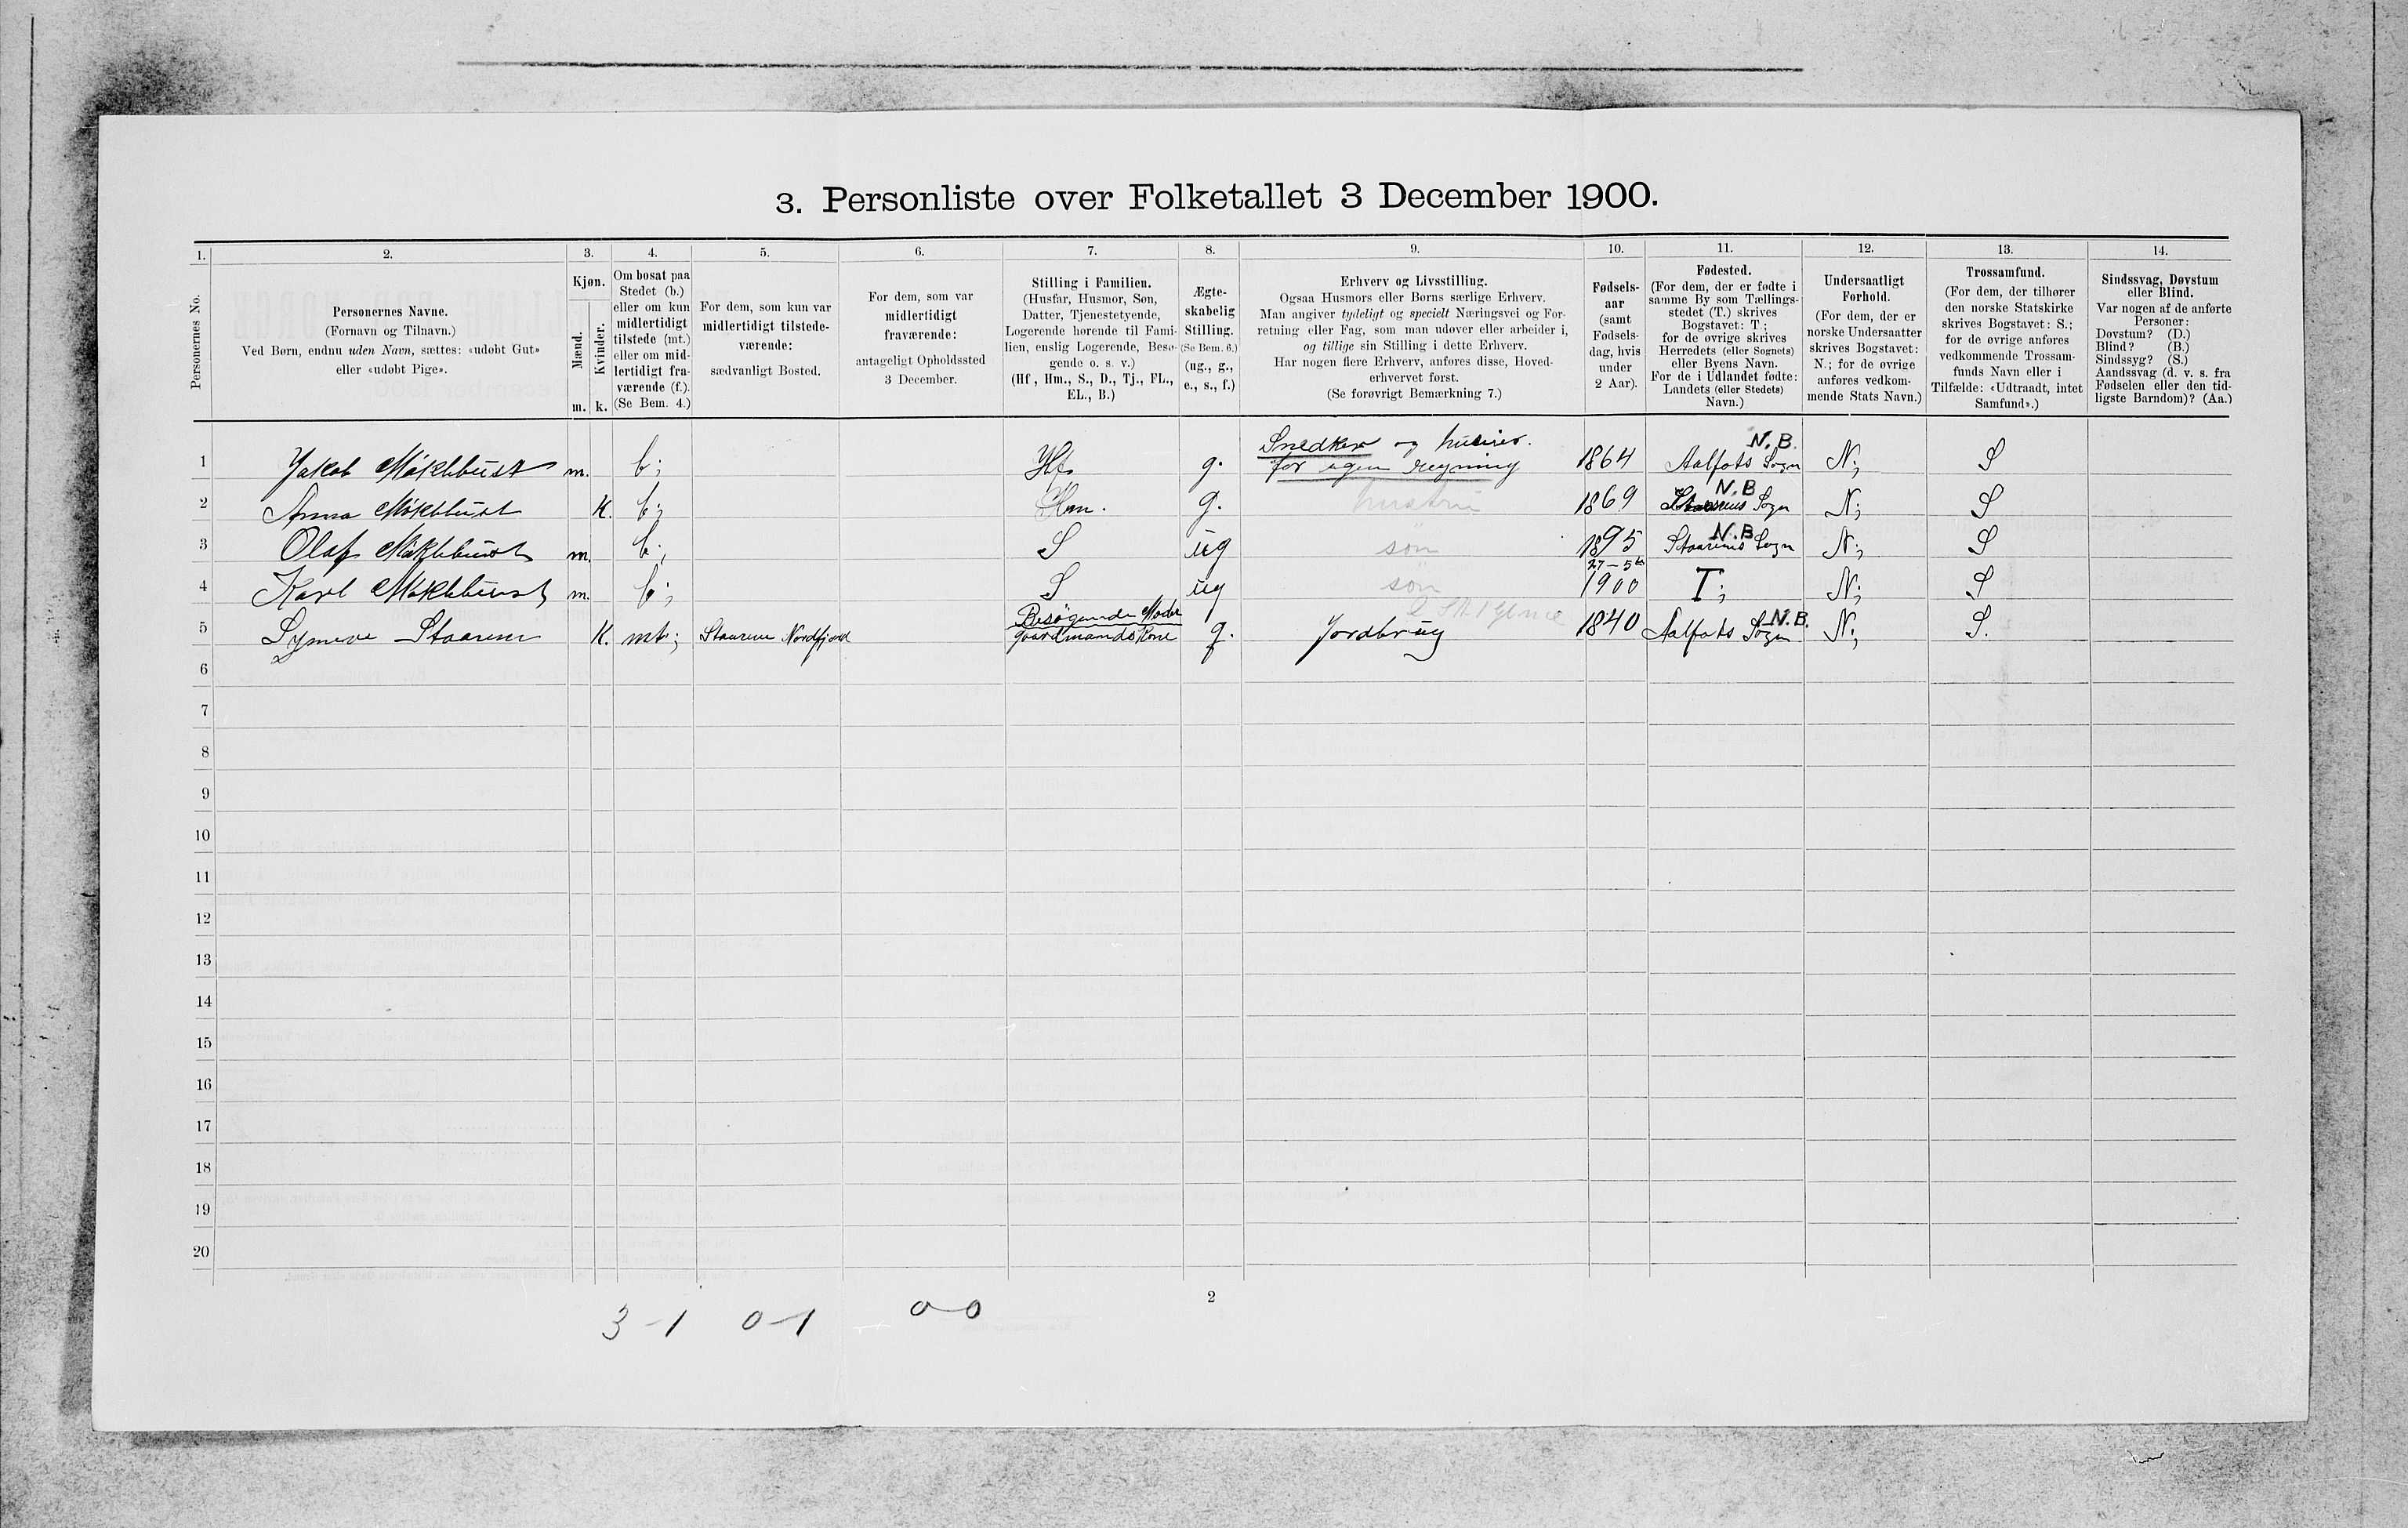 3. Personliste over Folketallet 3 December 1900.
1. 2. 3. 4. 5. 6. 7. 8. 9. 10. 11. 12. 13. 14.
Personernes No.
Personernes Navne.
(Fornavn og Tilnavn.)
Ved Børn, endnu uden Navn, sættes: «udøbt Gut»
eller «udøbt Pige».
Kjøn.
Mænd.
Kvinder.
m. k.
Om bosat paa
Stedet (b.)
eller om kun
midlertidigt
tilstede (mt.)
eller om mid-
lertidigt fra-
værende (f.).
(Se Bem. 4.)
For dem, som kun var
midlertidigt tilstede-
værende:
sædvanligt Bosted.
For dem, som var
midlertidigt
fraværende:
antageligt Opholdssted
3 December.
Stilling i Familien.
(Husfar, Husmor, Søn,
Datter, Tjenestetyende,
Logerende hørende til Fami-
lien, enslig Logerende, Besø-
gende o. s. v.)
(Hf, Hm., S., D., Tj., FL.,
EL., B.)
Ægte-
skabelig
Stilling.
(Se Bem. 6.)
(ug., g.,
e., s., f.)
Erhverv og Livsstilling.
Ogsaa Husmors eller Børns særlige Erhverv.
Man angiver tydeligt og specielt Næringsvei og For-
retning eller Fag, som man udøver eller arbeider i,
og tillige sin Stilling i dette Erhverv.
Har nogen flere Erhverv, anføres disse, Hoved-
erhvervet først.
(Se forøvrigt Bemærkning 7.)
Fødsels-
aar
(samt
Fødsels-
dag, hvis
under
2 Aar).
Fødested.
(For dem, der er fødte i
samme By som Tællings-
stedet (T.) skrives
Bogstavet: T.;
for de øvrige skrives
Herredets (eller Sognets)
eller Byens Navn.
For de i Udlandet fødte:
Landets (eller Stedets)
Navn.)
Undersaatligt
Forhold.
(For dem, der er
norske Undersaatter
skrives Bogstavet:
N.; for de øvrige
anføres vedkom-
mende Stats Navn.)
Trossamfund.
(For dem, der tilhører
den norske Statskirke
skrives Bogstavet: S.;
for de øvrige anføres
vedkommende Trossam-
funds Navn eller i
Tilfælde: «Udtraadt, intet
Samfund».)
Sindssvag, Døvstum
eller Blind.
Var nogen af de anførte
Personer:
Døvstum? (D.)
Blind? (B.)
Sindssyg? (S.)
Aandssvag (d. v. s. fra
Fødselen eller den tid-
ligste Barndom)? (Aa.)
Snedker og N.B.
1 Jakob Måklebust m. b; Hf g. for egen regning 1864 Aalfots Sogn N; S
N.B
2 Anna Måklebust K. b; Hm. g. hustru 1869 Sogn N; S
N.B
3 Olaf Måklebust m. b; S ug søn 1895 Staarens Sogn N; S
27-5
4 Karl Måklebust m. b; S ug søn 1900 T; N; S
Besøgende Moder N.B.
5 Synneve Staaren K. mt; Staaren Nordfjord gaardmandskone g. Jordbrug 1840 Aalfots Sogn N; S.
6
7
8
9
10
11
12
13
14
15
16
17
18
19
20
2
3-1 0-1 0-0